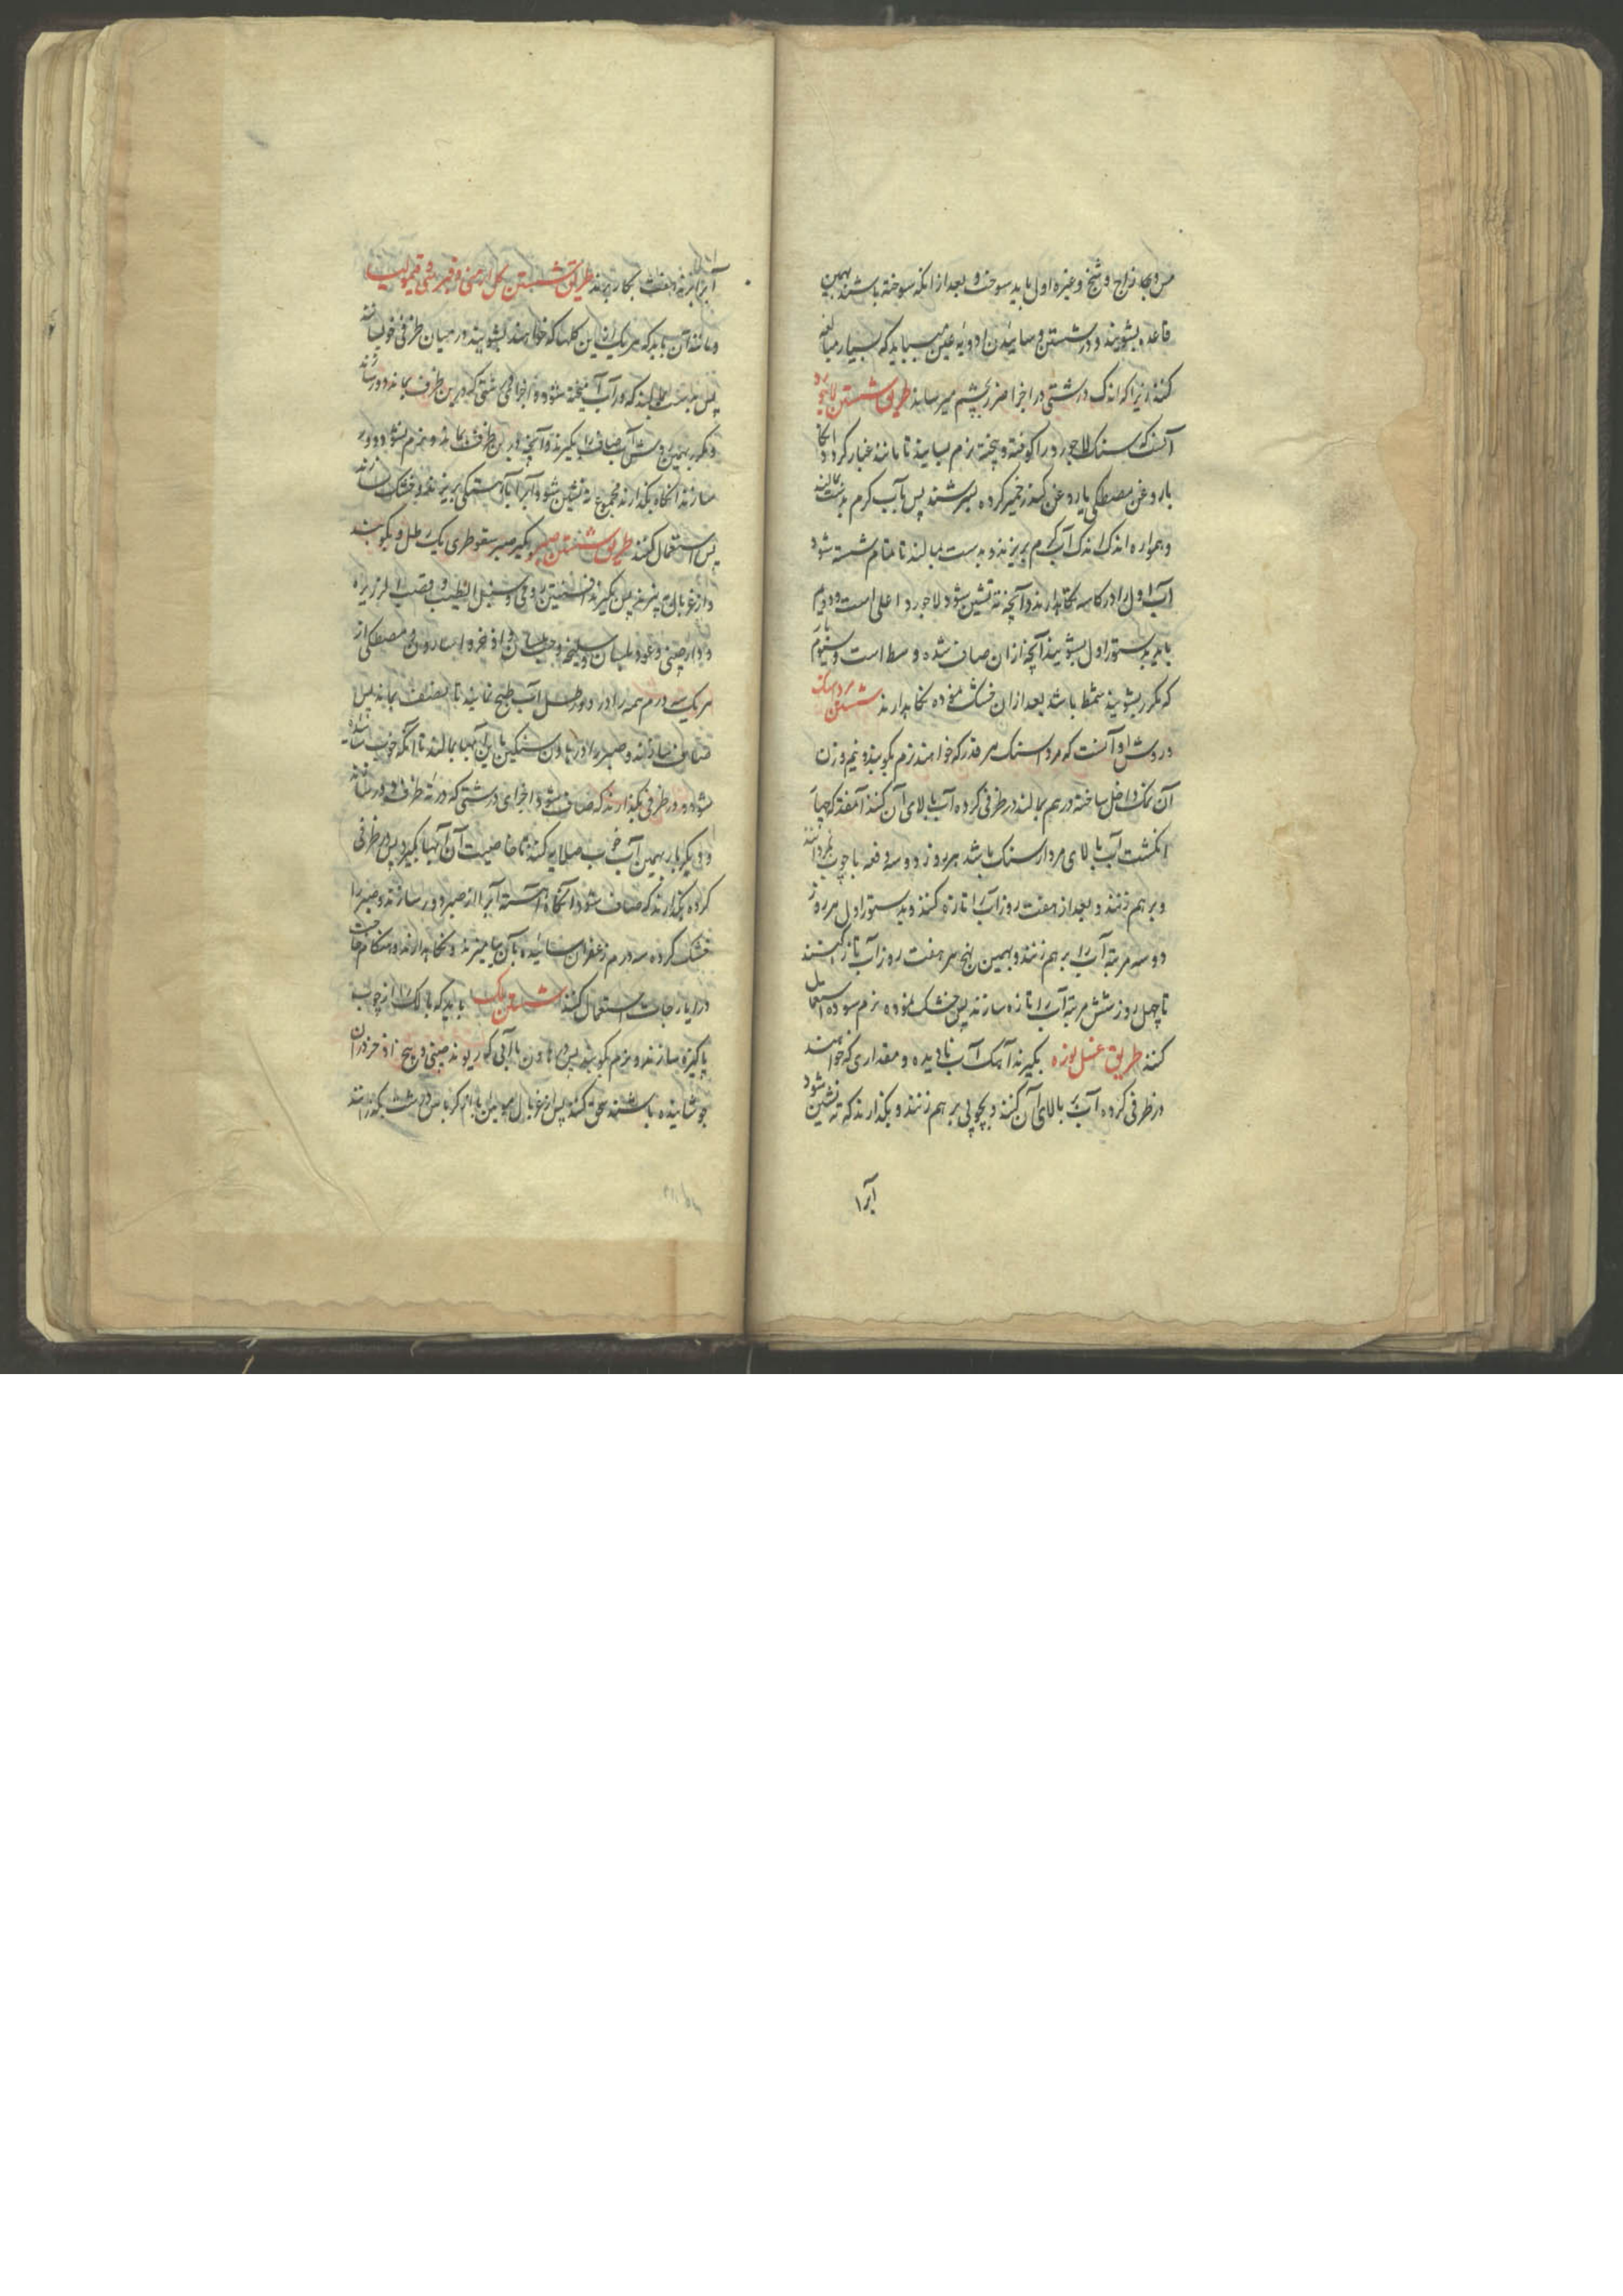 مس و زاج و شنج و غیره اول باید سوخت و بعد از انکه سوخته باشند بهمین
قاعده بشویند و در شستن و ساییدن ادویه عین میباید که بسیار مبالغه
کنند زیرا که اندک درشتی در اجزا ضرر بچشم میرساند طریق شستن لاجورد
آنست که سنک لاجورد را کوفته و پخته نرم بسایند تا مانند غبار کردد انکاه
با روغن مصطکی یا روغن کرده بسرشند پس بآب کرم بدست بمالند
و همواره اندک اندک آب کرم بریزند و بدست بمالند تا تمام شسته شود
آب اول را در کاسه نکاهدارند و آنچه ته نشین شود لاجورد اعلی است و دویم
باید بدستور اول بشویند آنچه از ان صاف شده وسط است و سیوم بار
که مکرر بشویند سقط باشد بعد از ان خشک نموده نکاهدارند شستن مرداسنک
و روش او آنست که مرداسنک هر قدر که خواهند نرم بکوبند و نیم وزن
آن نمک داخل ساخته در هم بمالند در ظرفی کرده آب بالای آن کنند آنقدر که چهار
انکشت آب بالای مرداسنک باشد هر روز دو سه دفعه با چوب بکردانند
و بر هم زنند و بعد از هفت روز آب را تازه کنند و بدستور اول هر روز
دو سه مرتبه آب را بر هم زنند و بهمین نهج هر هفت روز آب تازه کنند
تا چهل روز شش مرتبه آب را تازه سازند پس خشک نموده نرم سوده استعمال
کنند طریق غسل نوره بکیرند آهک آب نادیده و مقداری که خواهند
در ظرفی کرده آب بالای آن کنند و بچوبی بر هم زنند و بکذارند که ته نشین شود
آبرا
آبرا بریزند بکار برند طریق شستن کل ارمنی و قبرسی و قیمولیا
و مانند آن باید که هر یک از این کلها که خواهند بشویند در میان ظرفی خیسانند
پس بدست بمالند که در آب آمیخته شود و اجزای درشتی که در بن ظرف بماند دور سازند
و مکرر بهمین روش آب صاف را بکیرند و آنچه در بن ظرف بماند و نرم نشود دور
سازند انکاه بکذارند مجموع ته نشین شود و آبرا بآهستکی بریزند و خشک سازند
پس استعمال کنند طریق شستن صبر بکیر صبر سقوطری یک رطل و بکوبند
و از غربال پس بکیرند افسنتین رومی و سنبل الطیب و قصب الزریره
و دارچینی و عود بلسان و سلیخه و حب بلسان و اذخر و اسارون و مصطکی از
هر یک سه درم همه را در دو رطل آب طبخ نمایند تا بنصف بماند پس
صاف سازند و صبر را در هاون سنکین با این آبها بمالند تا آنکه خوب سائیده
شود و در ظرفی بکذارند که صاف شود و اجزای درشتی که در ته ظرف بود
و دیکر بار بهمین آب خوب صلایه کنند تا خاصیت آن آبها بکیرد پس در ظرفی
کرده بکذارند که صاف شود آنکاه آهسته آبرا از صبر دور سازند و صبر را
خشک کرده سه درم زعفران سائیده بآن بیامیزند و نکاهدارند و هنکام حاجت
در ایارجات استعمال کنند شستن لک باید که لک را از چوب
پاکیزه سازند و نرم بکوبند پس در هاون با آبی که ریوند چینی و بیخ اذخر در ان
جوشانیده باشند سحق کنند پس از غربال موئین یا کرباس درشت بکذرانند